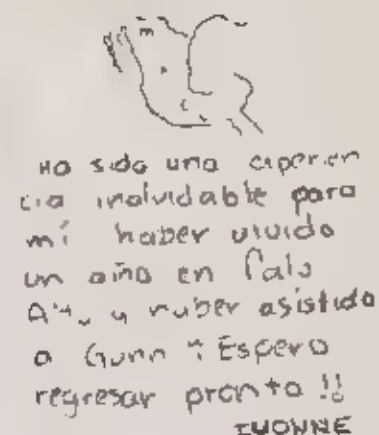 Ha sido una experien
cia inolvidable para
mí haber vivido
un año en Palo
Alto y haber asistido
a Gunn. Espero
regresar pronto!!
IVONNE